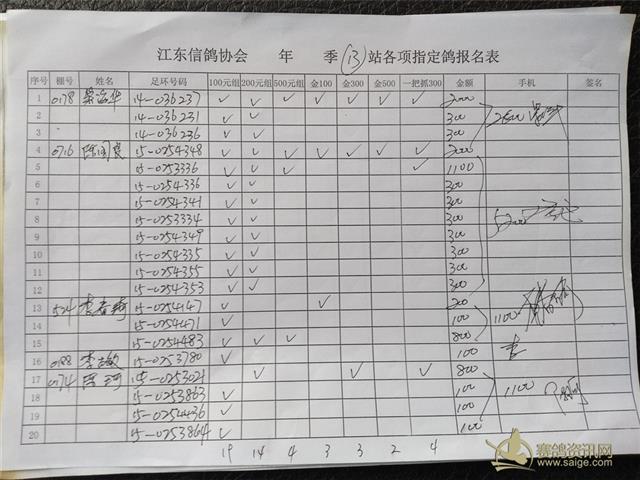 江东信鸽协会 年 季 13 站各项指定鸽报名表
序号 棚号 姓名 足环号码 100元组 200元组 500元组 金100 金300 金500 一把抓300 金额 手机 签名
1 0178 14-036237 ✓ ✓ ✓ ✓ ✓ ✓ ✓ 2000
2 14-036231 ✓ ✓ 300
3 14-036236 ✓ ✓ 300
4 0716 15-0254348 ✓ ✓ ✓ ✓ ✓ ✓ ✓ 2000
5 15-0253336 ✓ ✓ ✓ ✓ 1100
6 15-0254336 ✓ ✓ 300
7 15-0254341 ✓ ✓ 300
8 15-0253334 ✓ ✓ 300
9 15-0254349 ✓ ✓ 300
10 15-0254335 ✓ ✓ 300
11 15-0254355 ✓ ✓ 300
12 15-0254353 ✓ ✓ 300
13 524 15-0254147 ✓ ✓ 200
14 15-0254471 ✓ 100 1100
15 15-0254483 ✓ ✓ ✓ 800
16 李 15-0253780 ✓ 100
17 0174 15-0253021 ✓ ✓ ✓ 800
18 15-0253863 ✓ 100 1100
19 15-0254436 ✓ 100
20 15-0253864 ✓ 100
19 14 4 3 3 2 4
赛鸽资讯网
www.saige.com